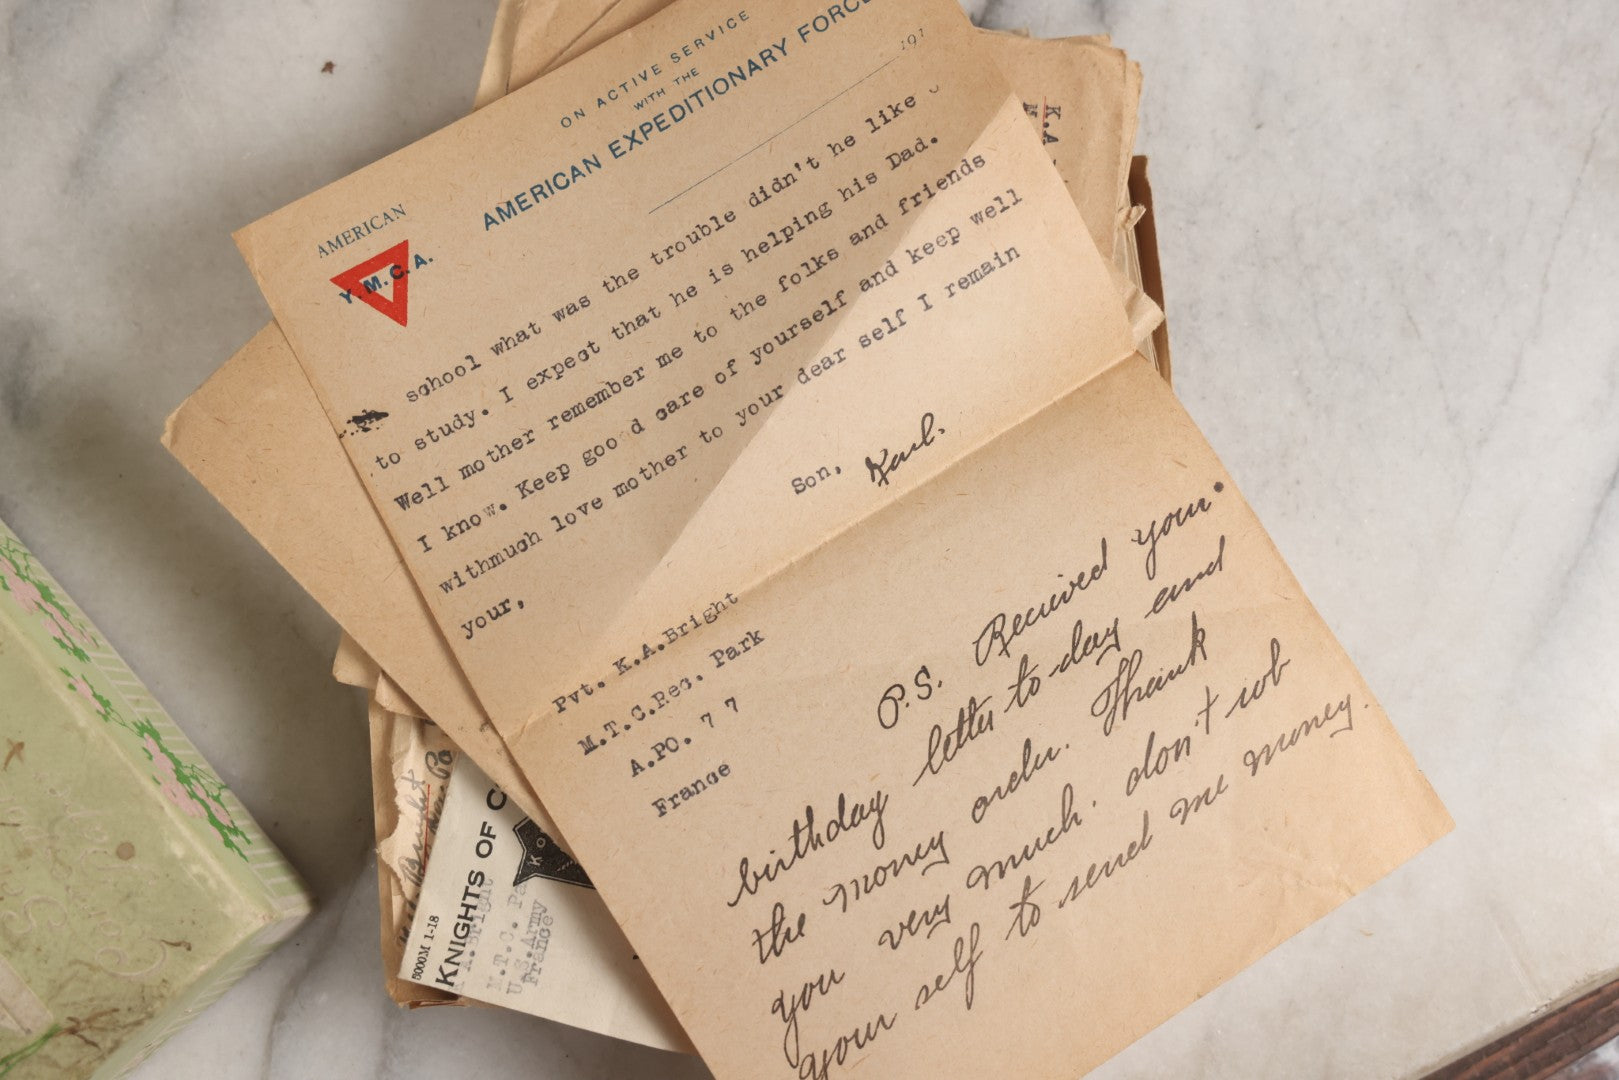 ON ACTIVE SERVICE
WITH THE
AMERICAN EXPEDITIONARY FORCE
191
AMERICAN
Y.M.C.A.
school what was the trouble didn't he like
to study. I expect that he is helping his Dad.
Well mother remember me to the folks and friends
I know. Keep goo d care of yourself and keep well
withmuch love mother to your dear self I remain
your,
Son, Karl.
Pvt. K.A.Bright
M.T.C.Rec. Park
A.PO. 7 7
France
P.S. Recuived your
birthday letter to-day and
the money order. Thank
you very much. don't rob
your self to send me money.
K.A.
KNIGHTS OF C
K O
5000M 1-18
A.Bright
M.T.C. Pa
U.S.Army
France
Bright